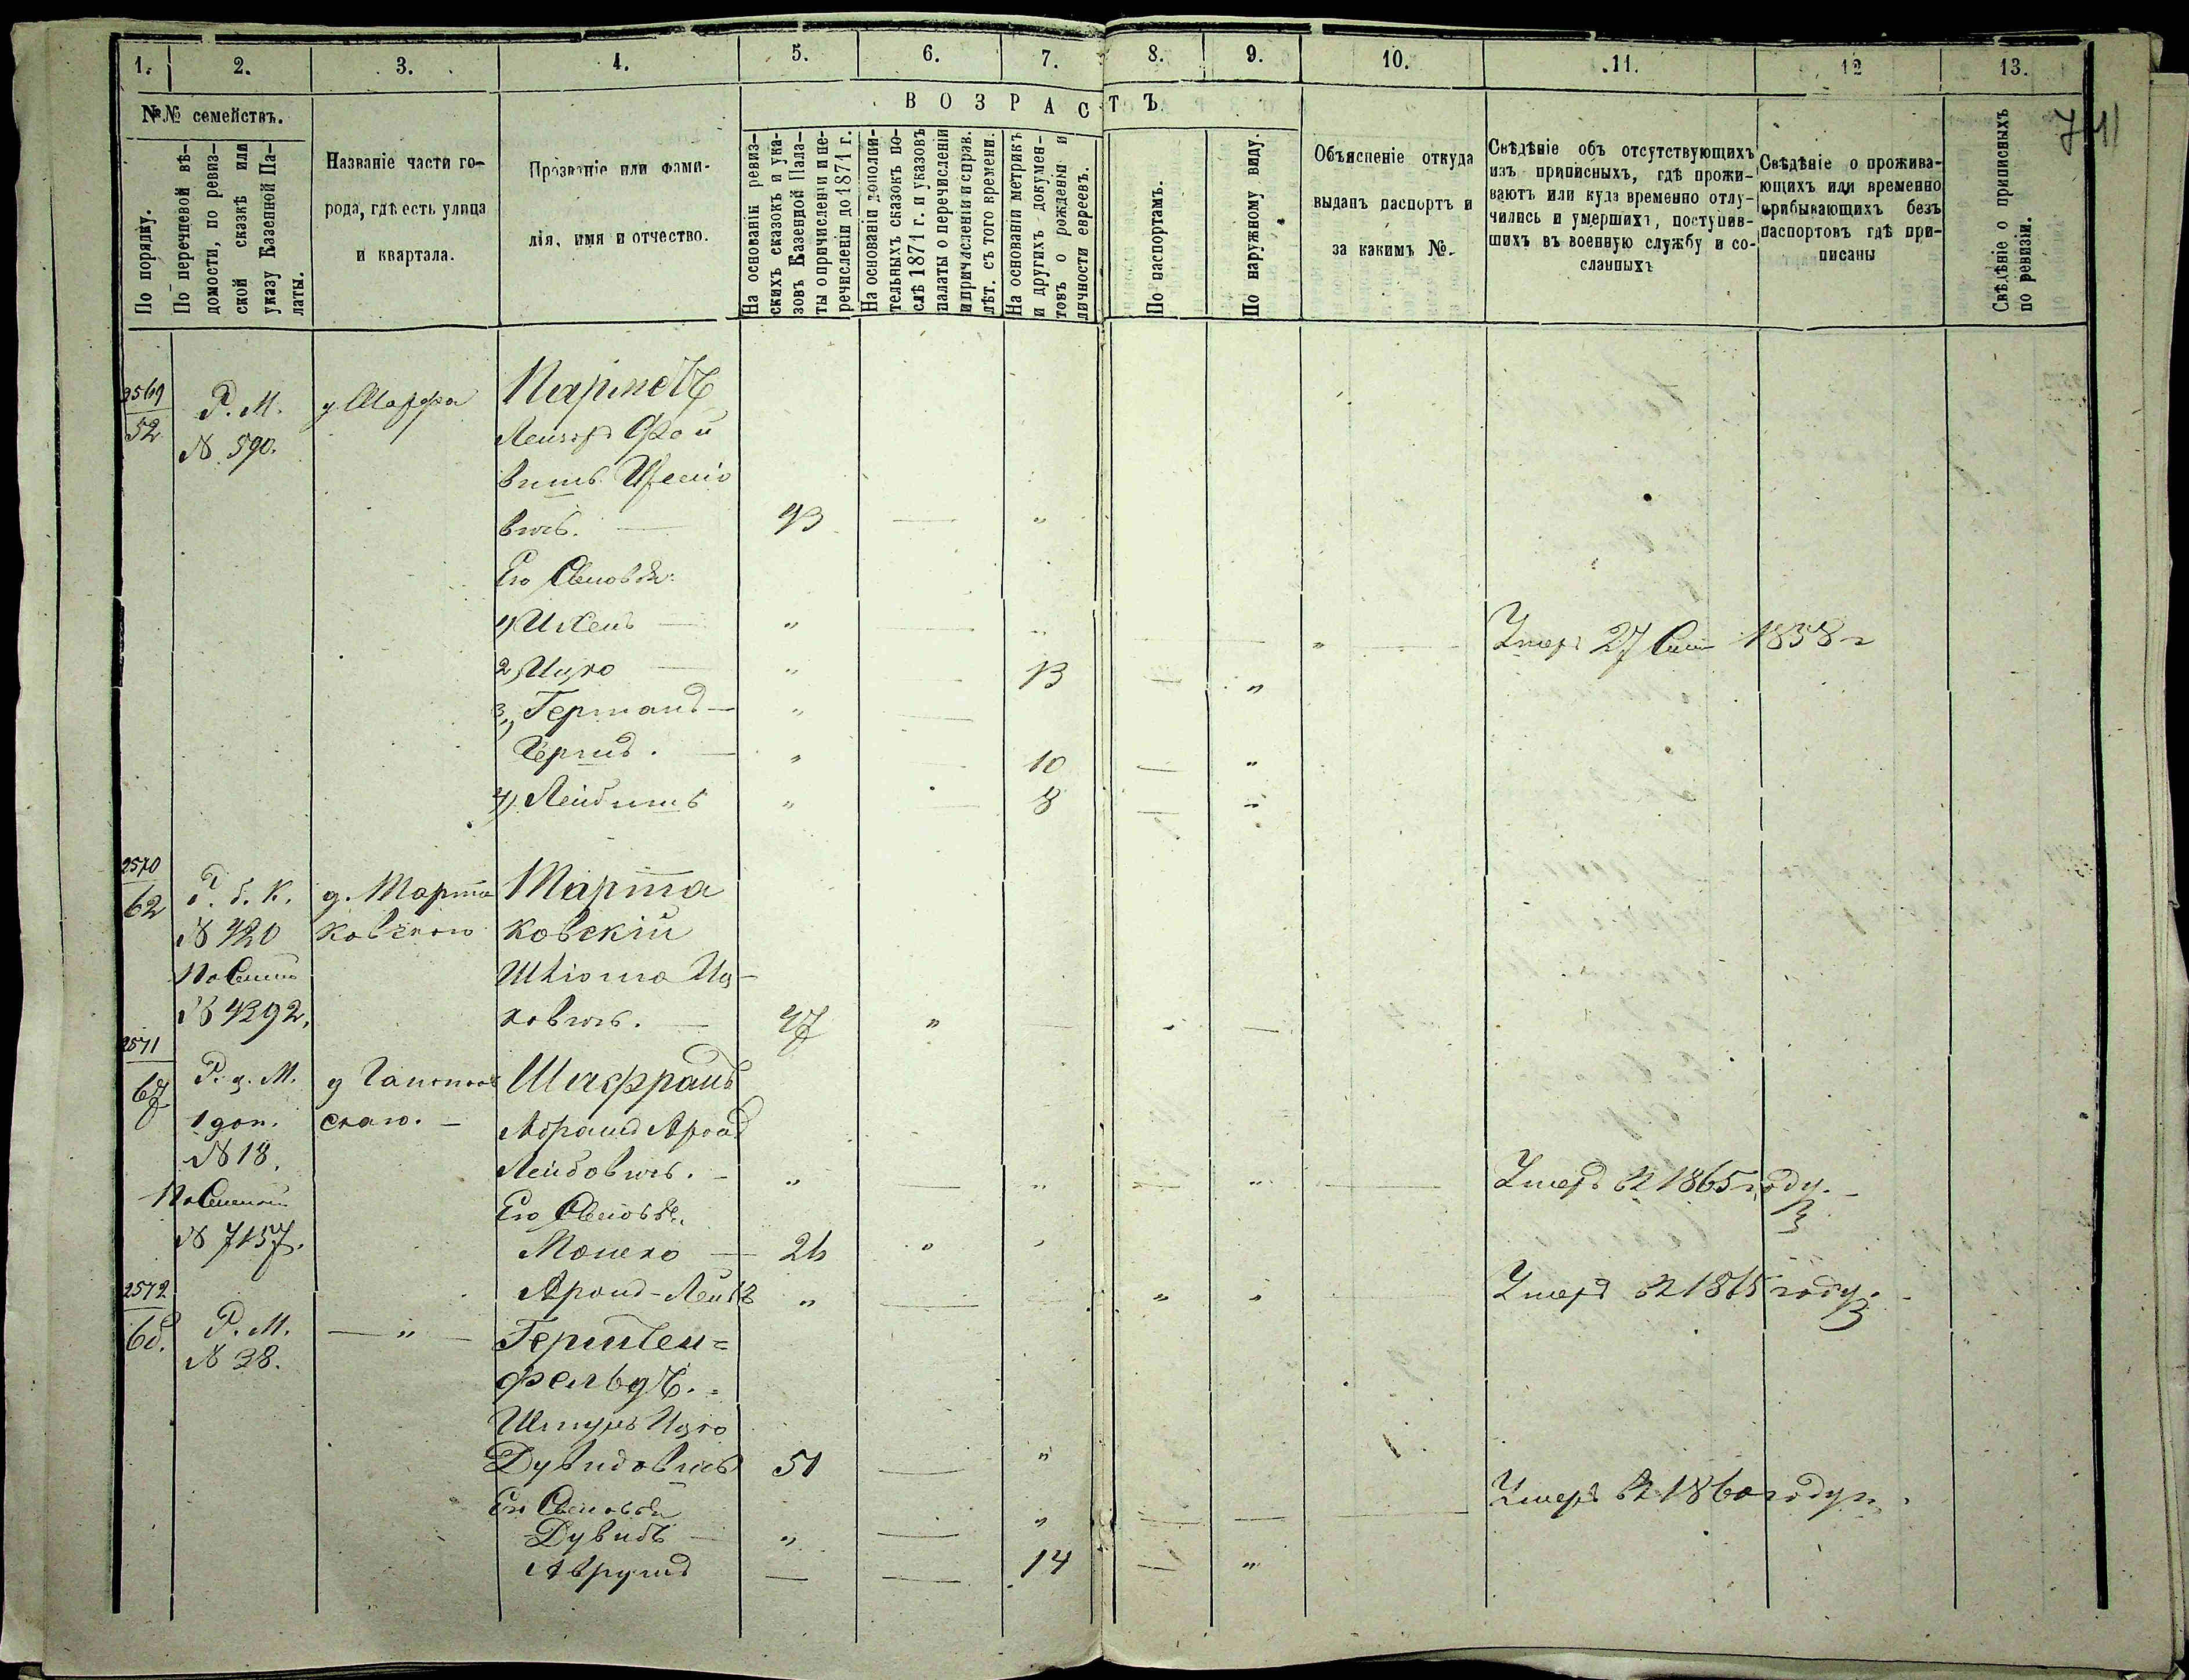 1. 2. 3. 4. 5. 6. 7. 8. 9. 10. 11. 12 13.
ВОЗРАСТЪ.
№№ семействъ.
По порядку.
По перечневой вѣ-
домости, по ревиз-
ской сказкѣ или
указу Казенной Па-
латы.
Названіе части го-
рода, гдѣ есть улица
и квартала.
Прозваніе или фами-
лія, имя и отчество.
На основаніи ревиз-
скихъ сказокъ и ука-
зовъ Казенной Пала-
ты о причисленіи и пе-
речисленіи до 1871 г.
На основаніи дополни-
тельныхъ сказокъ по-
слѣ 1871 г. и указовъ
палаты о перечисленіи
и причисленіи и справ.
лѣт. съ того времени.
На основаніи метрикъ
и другихъ докумен-
товъ о рожденіи и
личности евреевъ.
По паспортамъ.
По наружному виду.
Объясненіе откуда
выданъ паспортъ и
за какимъ №.
Свѣдѣніе объ отсутствующихъ
изъ приписныхъ, гдѣ прожи-
ваютъ или куда временно отлу-
чились и умершихъ, поступив-
шихъ въ военную службу и со-
сланныхъ
Свѣдѣніе о прожива-
ющихъ или временно
прибывающихъ безъ
паспортовъ гдѣ при-
писаны
Свѣдѣніе о приписныхъ
по ревизіи.
2569
52
Р. М.
№ 590.
вичъ. — 43 — "
Его Сыновья:
" — " Умеръ 27 1858 г
2) Ицко — " — 13 — "
3, Германъ — " —
Герш. — " — 10 — "
4) Лейбишъ " — 8 — "
2570
62
Р. б. К. д. Марта Марта
№ 420 ковскаго ковскій
Шліома Иц-
№ 4392. ковичъ. — 47 " — " —
2571
67
Р. д. М. д Шафранъ
1 доп. скаго. — Абрамъ Аронъ
№ 18. Лейбовичъ. — " — " — " — Умеръ въ 1865 году.
Его Сыновья.
№ 7157. Мошко — 26 " "
Аронъ-Лейба " — " " — Умеръ въ 1865 году.
2572
68.
Р. М. — " — Герштен=
№ 38. фельдъ.
Шмуль Ицко
Дувидовичъ 51 — "
Его Сыновья
Дувидъ — " — " — — — Умеръ въ 1860 году.
Аврумъ — — 14 — "